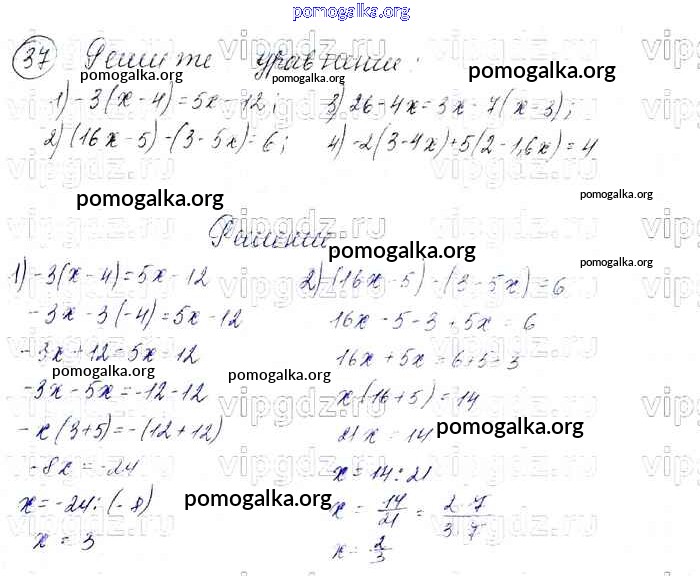 pomogalka.org
37 Решите уравнения:
1) -3(x-4)=5x-12; 3) 26-4x=3x-7(x-3);
2) (16x-5)-(3-5x)=6; 4) -2(3-4x)+5(2-1,6x)=4
Решение
1) -3(x-4)=5x-12
-3x-3(-4)=5x-12
-3x+12=5x-12
-3x-5x=-12-12
-x(3+5)=-(12+12)
-8x=-24
x=-24:(-8)
x=3
2) (16x-5)-(3-5x)=6
16x-5-3+5x=6
16x+5x=6+5+3
x(16+5)=14
21x=14
x=14:21
x=14/21=2·7/3·7
x=2/3
pomogalka.org
pomogalka.org
pomogalka.org
pomogalka.org
pomogalka.org
pomogalka.org
pomogalka.org
pomogalka.org
pomogalka.org
pomogalka.org
pomogalka.org
pomogalka.org
vipgdz.ru